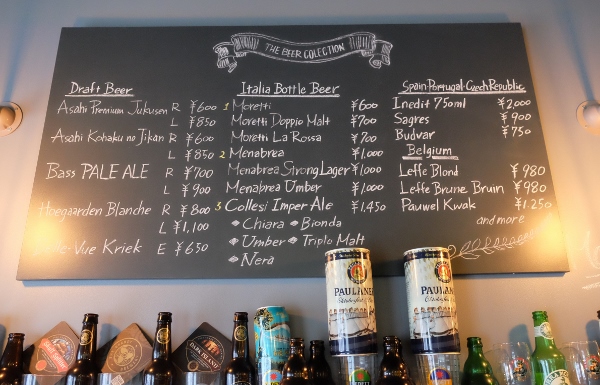 THE BEER COLECTION
Draft Beer
Asahi Premium Jukusen R ¥600
L ¥850
Asahi Kohaku no Jikan R ¥600
L ¥850
Bass PALE ALE R ¥700
L ¥900
Hoegaarden Blanche R ¥800
L ¥1,100
-Vue Kriek E ¥650
Italia Bottle Beer
1 Moretti ¥600
Moretti Doppio Malt ¥700
Moretti La Rossa ¥700
2 Menabrea ¥1,000
Menabrea Strong Lager ¥1,000
Menabrea Umber ¥1,000
3 Collesi Imper Ale ¥1,450
Chiara Bionda
Umber Triplo Malt
Nera
Spain・Portugal・Czech Republic
Inedit 750ml ¥2,000
Sagres ¥900
Budvar ¥750
Belgium
Leffe Blond ¥980
Leffe Brune Bruin ¥980
Pauwel Kwak ¥1.250
and more
PAULANE
PAULAN